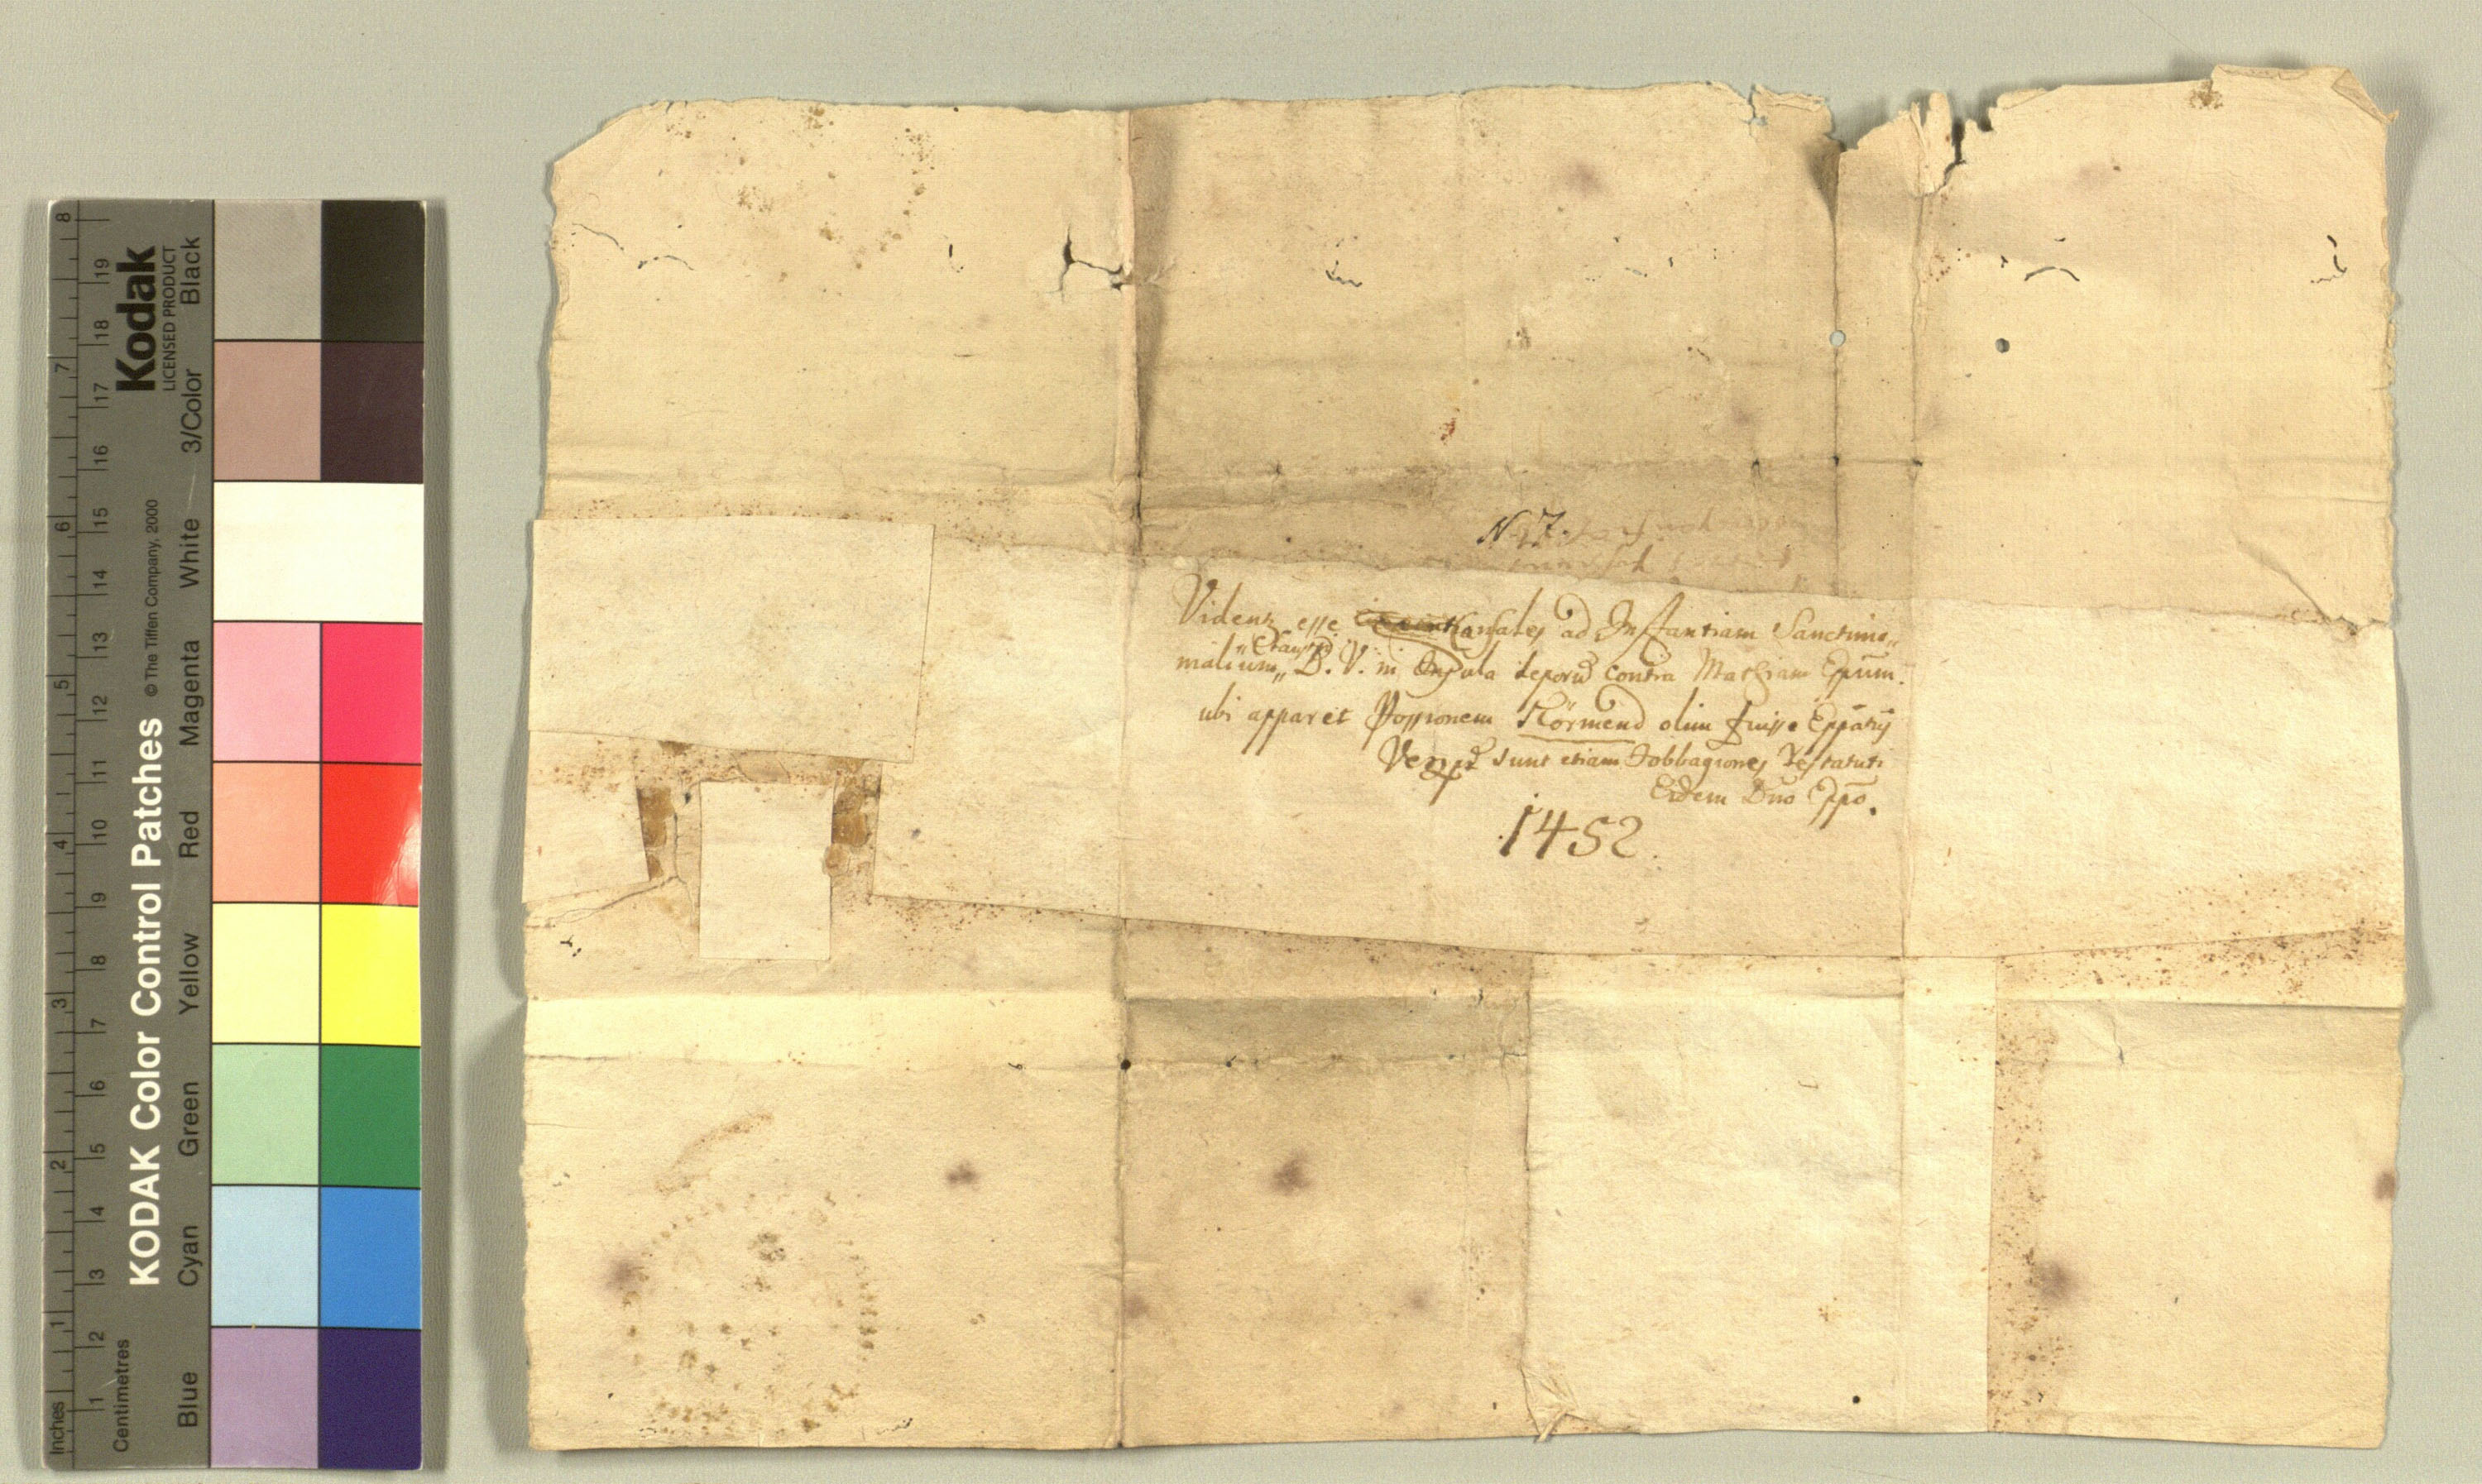 KODAK Color Control Patches
Kodak
LICENSED PRODUCT
© The Tiffen Company, 2000
Inches
1 2 3 4 5 6 7 8
Centimetres
1 2 3 4 5 6 7 8 9 10 11 12 13 14 15 16 17 18 19
Blue Cyan Green Yellow Red Magenta White 3/Color Black
N 7.
Videntr esse Causales ad Instantiam Sanctimo„
malium„ B. V. in Insula Leporũ contra Mathiam Eppum.
ubi apparet Possionem Körmend olim fuisse Eppatus
sunt etiam Jobbagiones
Eidem Dno Eppo.
1452.